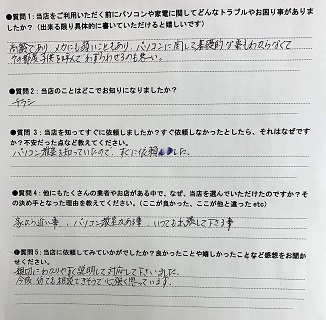 ●質問1：当店をご利用いただく前にパソコンや家電に関してどんなトラブルやお困り事がありま
したか？（出来る限り具体的に書いていただけると嬉しいです）
高齢であり メカにも弱いこともあり、パソコンに関して基礎的な事もわからなくて
その都度子供を呼んでわずらわせるのも悪い。
●質問2：当店のことはどこでお知りになりましたか？
チラシ
●質問 3：当店を知ってすぐに依頼しましたか？すぐ依頼しなかったとしたら、それはなぜです
か？不安だった点など教えてください。
パソコン教室を知っていたので、すぐに依頼しました。
●質問4：他にもたくさんの業者やお店がある中で、なぜ、当店を選んでいただけたのですか？そ
の決め手となった理由を教えてください。（ここが良かった、ここが他と違った etc）
家から近い事、パソコン教室である事、いつでも出張して下さる事
●質問5：当店に依頼してみていかがでしたか？良かったことや嬉しかったことなど感想をお聞か
せください。
親切にわかりやすく説明して対応して下さいました。
今後 何でも相談できそうで心強く思っています。